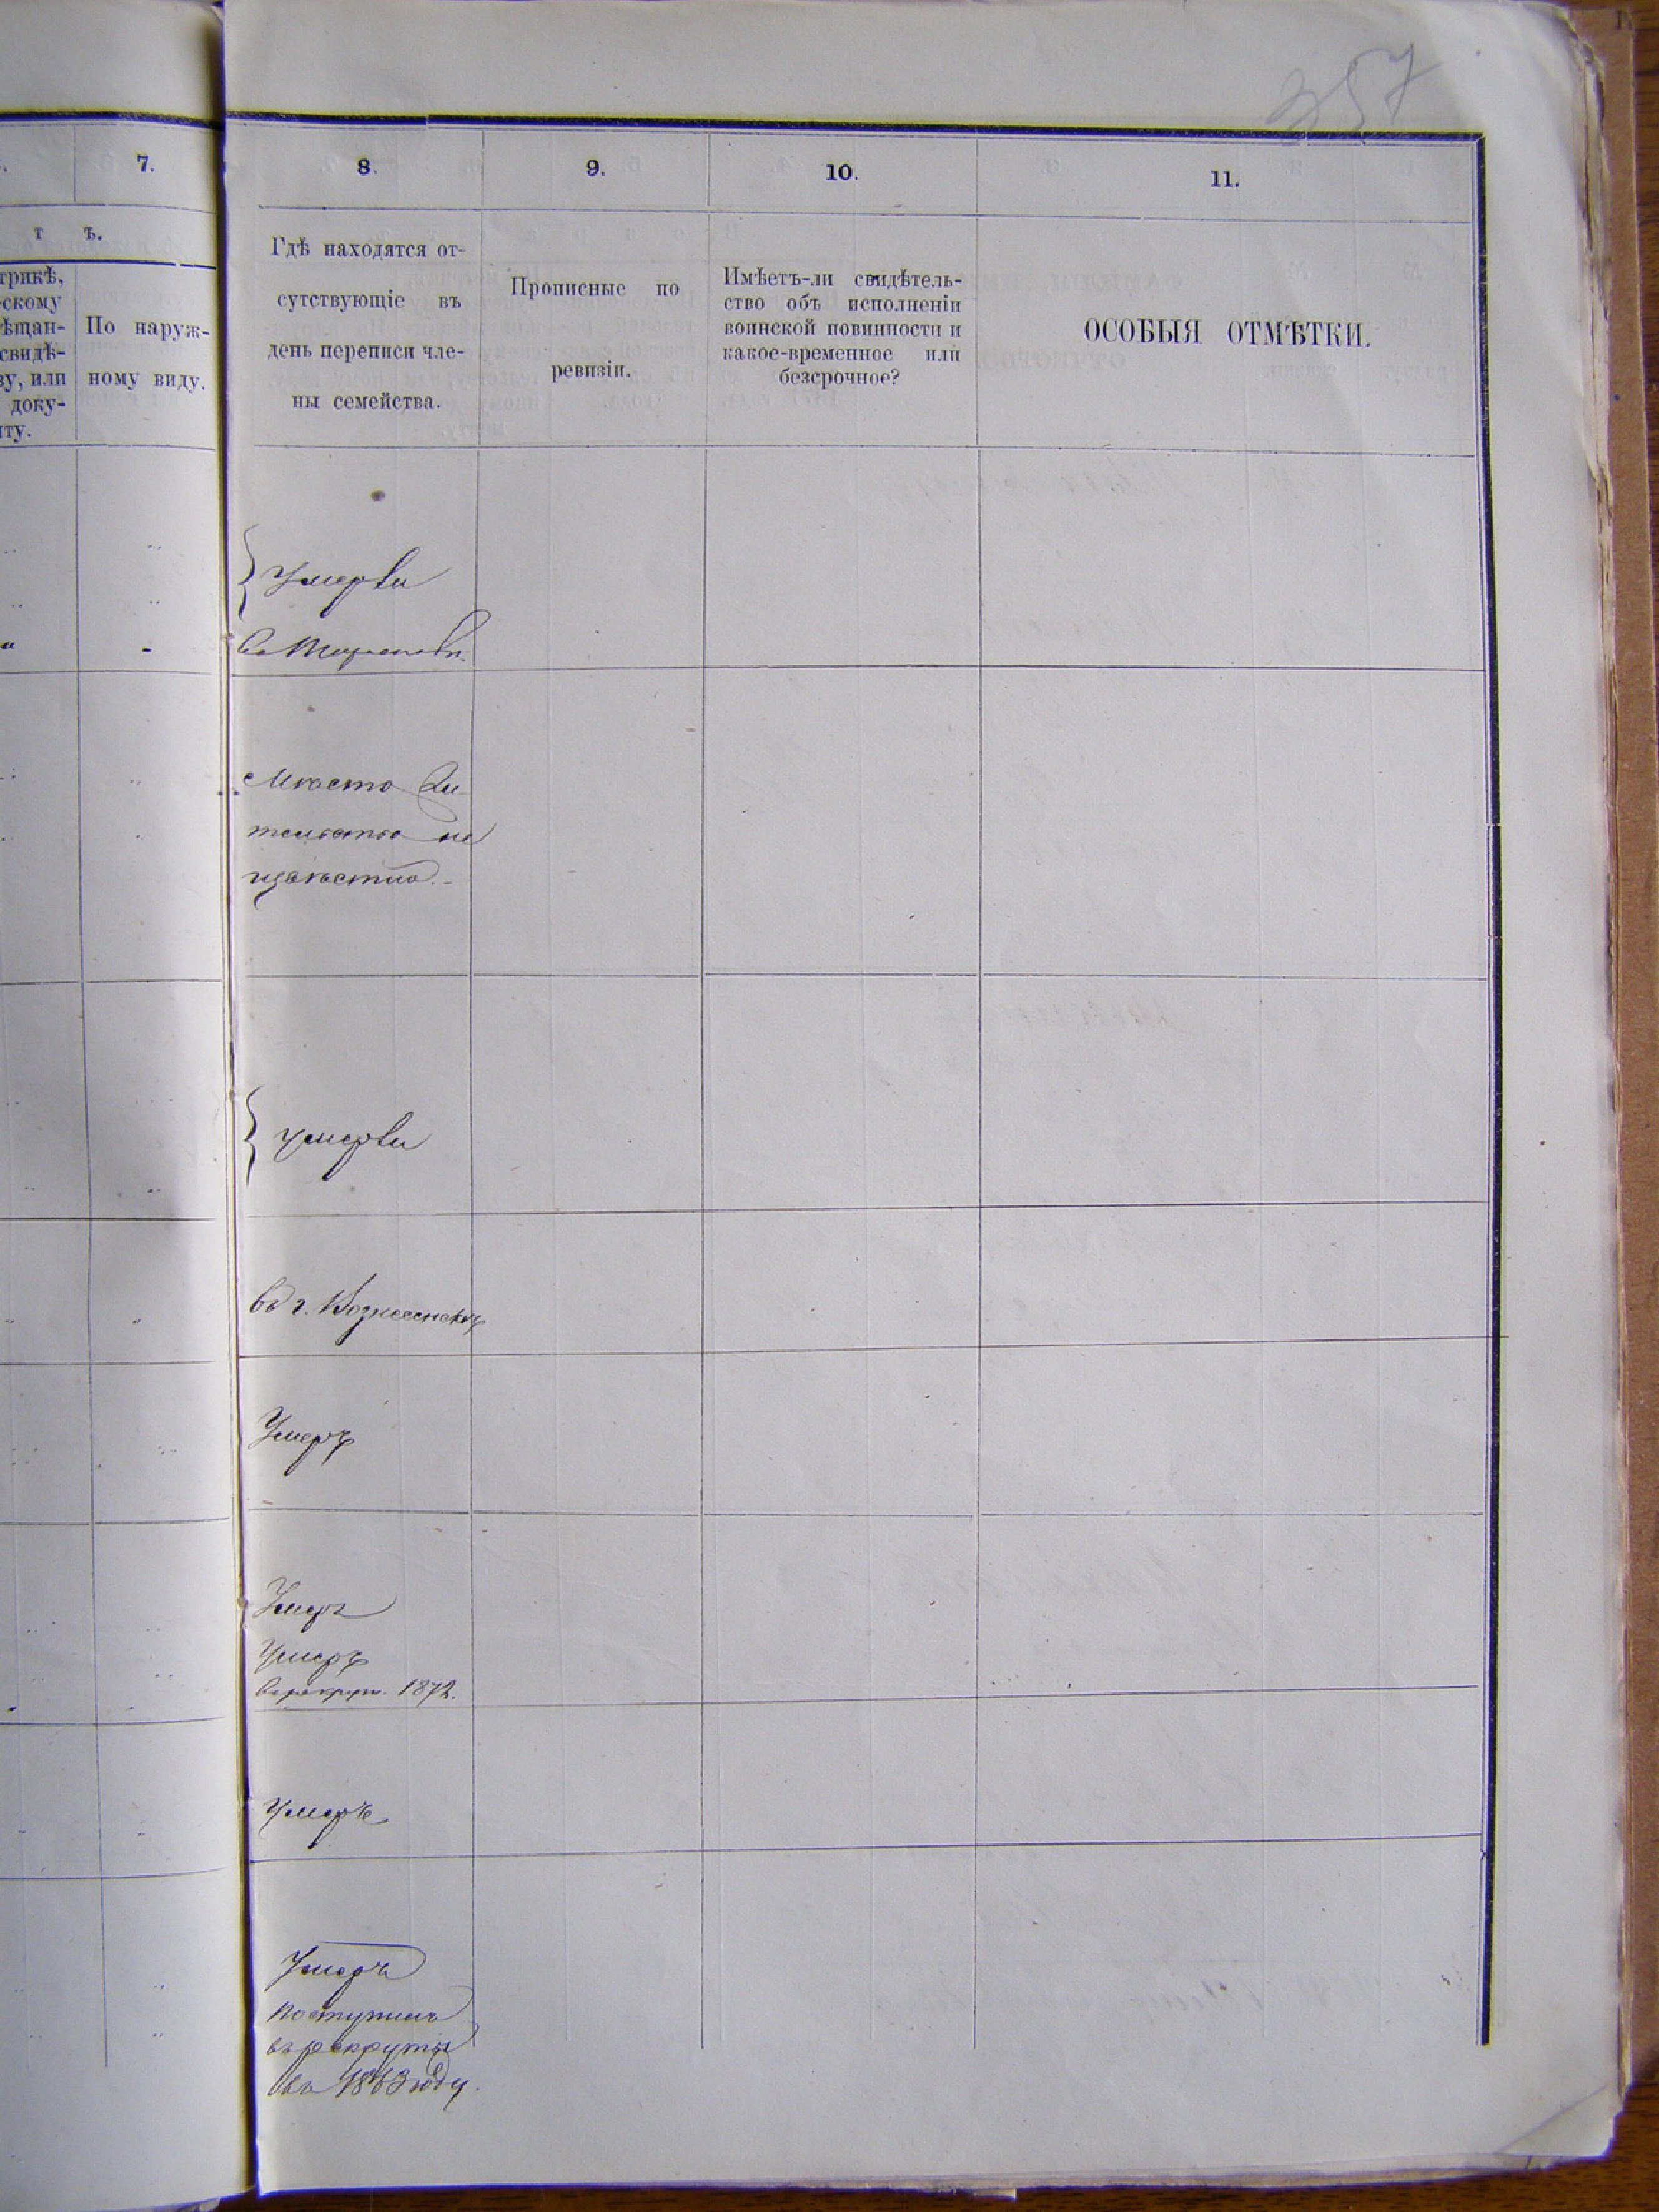 357
7.
8.
9.
10.
11.
т ъ.
трикѣ,
скому
ѣщан-
свидѣ-
ву, или
доку-
нту.
По наруж-
ному виду.
Гдѣ находятся от-
сутствующіе въ
день переписи чле-
ны семейства.
Прописные по
ревизіи.
Имѣетъ-ли свидѣтель-
ство объ исполненіи
воинской повинности и
какое-временное или
безсрочное?
ОСОБЫЯ ОТМѢТКИ.
Умерли
Въ
Мѣсто жи
тельства не
извѣстно.-
умерли
Въ г. Вознесенскѣ
Умеръ
Умеръ
Умеръ
Въ рекрут. 1872.
Умеръ
Умеръ
поступилъ
въ рекруты
въ 1863 году.